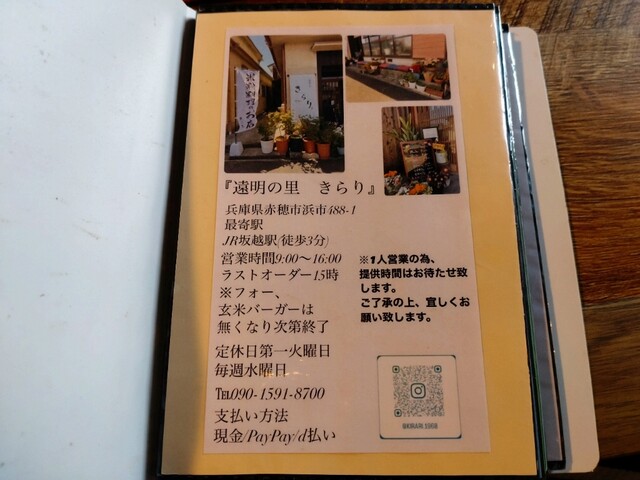 きらり
『遠明の里　きらり』
兵庫県赤穂市浜市488-1
最寄駅
JR坂越駅(徒歩3分)
営業時間9:00〜16:00
ラストオーダー15時
※フォー、
玄米バーガーは
無くなり次第終了
定休日第一火曜日
毎週水曜日
℡090-1591-8700
支払い方法
現金/PayPay/d払い
※1人営業の為、
提供時間はお待たせ致
します。
ご了承の上、宜しくお
願い致します。